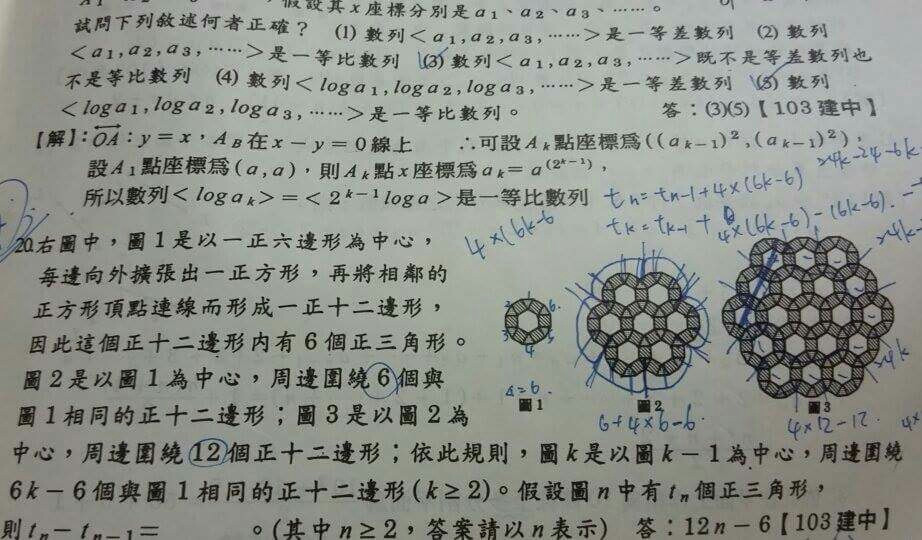 假設其x座標分別是a₁、a₂、a₃、……。
試問下列敘述何者正確? (1) 數列<a₁,a₂,a₃,……>是一等差數列 (2) 數列
<a₁,a₂,a₃,……>是一等比數列 (3) 數列<a₁,a₂,a₃,……>既不是等差數列也
不是等比數列 (4) 數列<loga₁,loga₂,loga₃,……>是一等差數列 (5) 數列
<loga₁,loga₂,loga₃,……>是一等比數列。 答:(3)(5)【103建中】
【解】:OA:y=x,A_B在x-y=0線上 ∴可設A_k點座標為((a_{k-1})²,(a_{k-1})²),
設A₁點座標為(a,a),則A_k點x座標為a_k=a^{(2^{k-1})},
所以數列<loga_k>=<2^{k-1}loga>是一等比數列
t_n=t_{n-1}+4×(6k-6)
24k-24-6k
4×(6k-6
t_k=t_{k-1}+4×(6k-6)-(6k-6).
20.右圖中,圖1是以一正六邊形為中心,
每邊向外擴張出一正方形,再將相鄰的
正方形頂點連線而形成一正十二邊形,
因此這個正十二邊形內有6個正三角形。
圖2是以圖1為中心,周邊圍繞6個與
圖1相同的正十二邊形;圖3是以圖2為
中心,周邊圍繞12個正十二邊形;依此規則,圖k是以圖k-1為中心,周邊圍繞
6k-6個與圖1相同的正十二邊形(k≥2)。假設圖n中有t_n個正三角形,
則t_n-t_{n-1}= 。(其中n≥2,答案請以n表示) 答:12n-6【103建中】
圖1
圖2
圖3
6+4×6-6.
4×12-12.